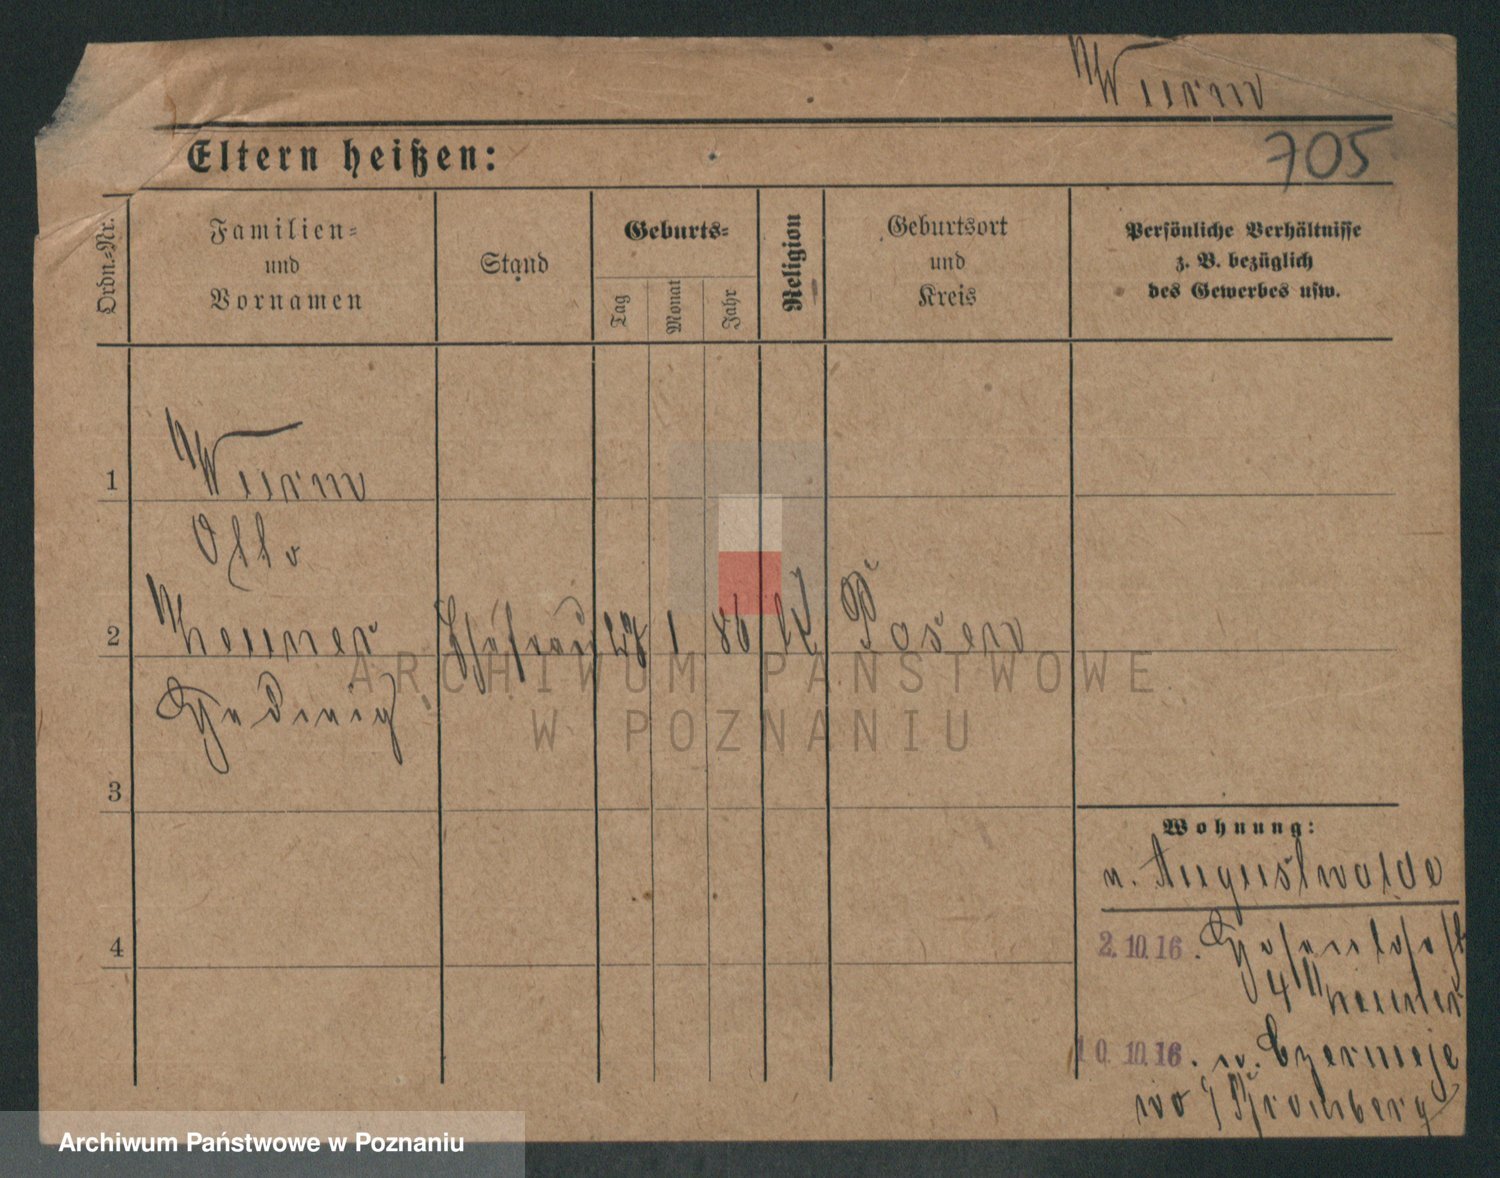 Wurm
705
Eltern heißen:
Ordn.-Nr.
Familien-
und
Vornamen
Stand
Geburts-
Tag
Monat
Jahr
Religion
Geburtsort
und
Kreis
Persönliche Verhältnisse
z. B. bezüglich
des Gewerbes usw.
1
Wurm
Otto
2
Ehefrau
1 86
Posen
Hedwig
3
4
Wohnung:
n. Augustwalde
2.10.16.
4
10.10.16. n.
Bromberg
ARCHIWUM PAŃSTWOWE
W POZNANIU
Archiwum Państwowe w Poznaniu